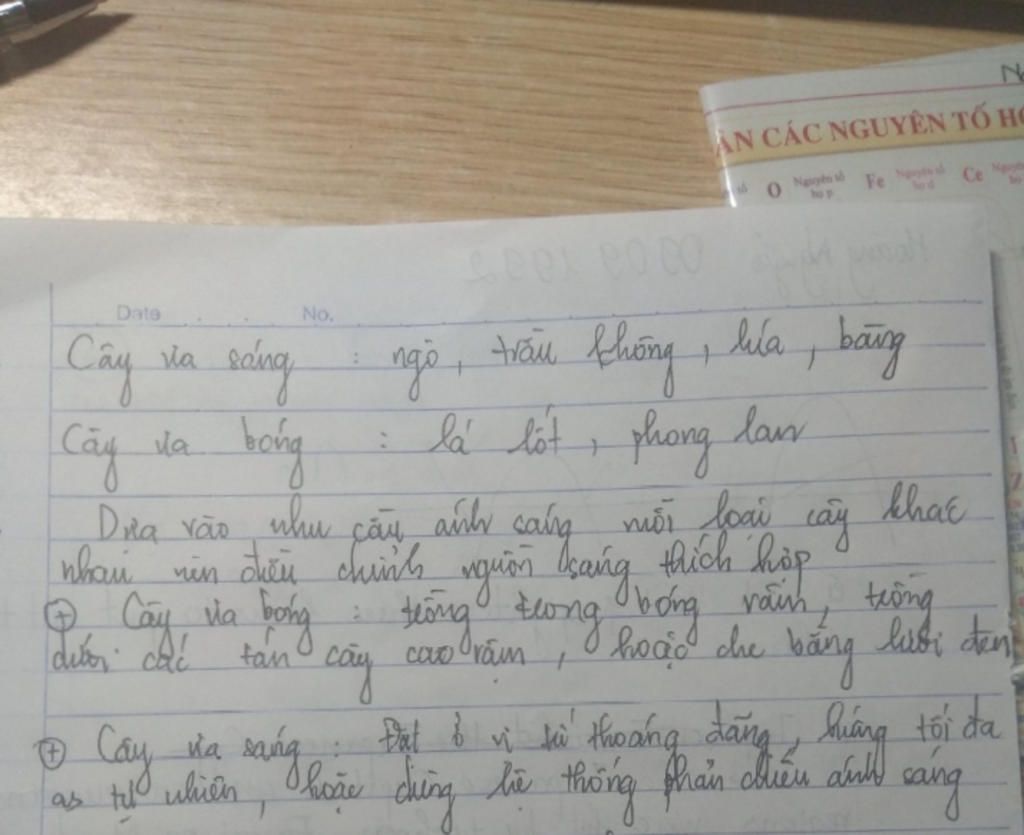 ÀN CÁC NGUYÊN TỐ H
O Nguyên tố họ p Fe Nguyên tố họ d Ce
Date No.
Cây ưa sáng : ngô, trầu không, lúa, bàng
Cây ưa bóng : lá lốt, phong lan
Dựa vào nhu cầu ánh sáng mỗi loại cây khác
nhau nên điều chỉnh nguồn sáng thích hợp
+ Cây ưa bóng : trồng trong bóng râm, trồng
dưới các tán cây cao rậm, hoặc che bằng lưới đen
+ Cây ưa sáng : Đặt ở vị trí thoáng đãng, hứng tối đa
as tự nhiên, hoặc dùng hệ thống phản chiếu ánh sáng